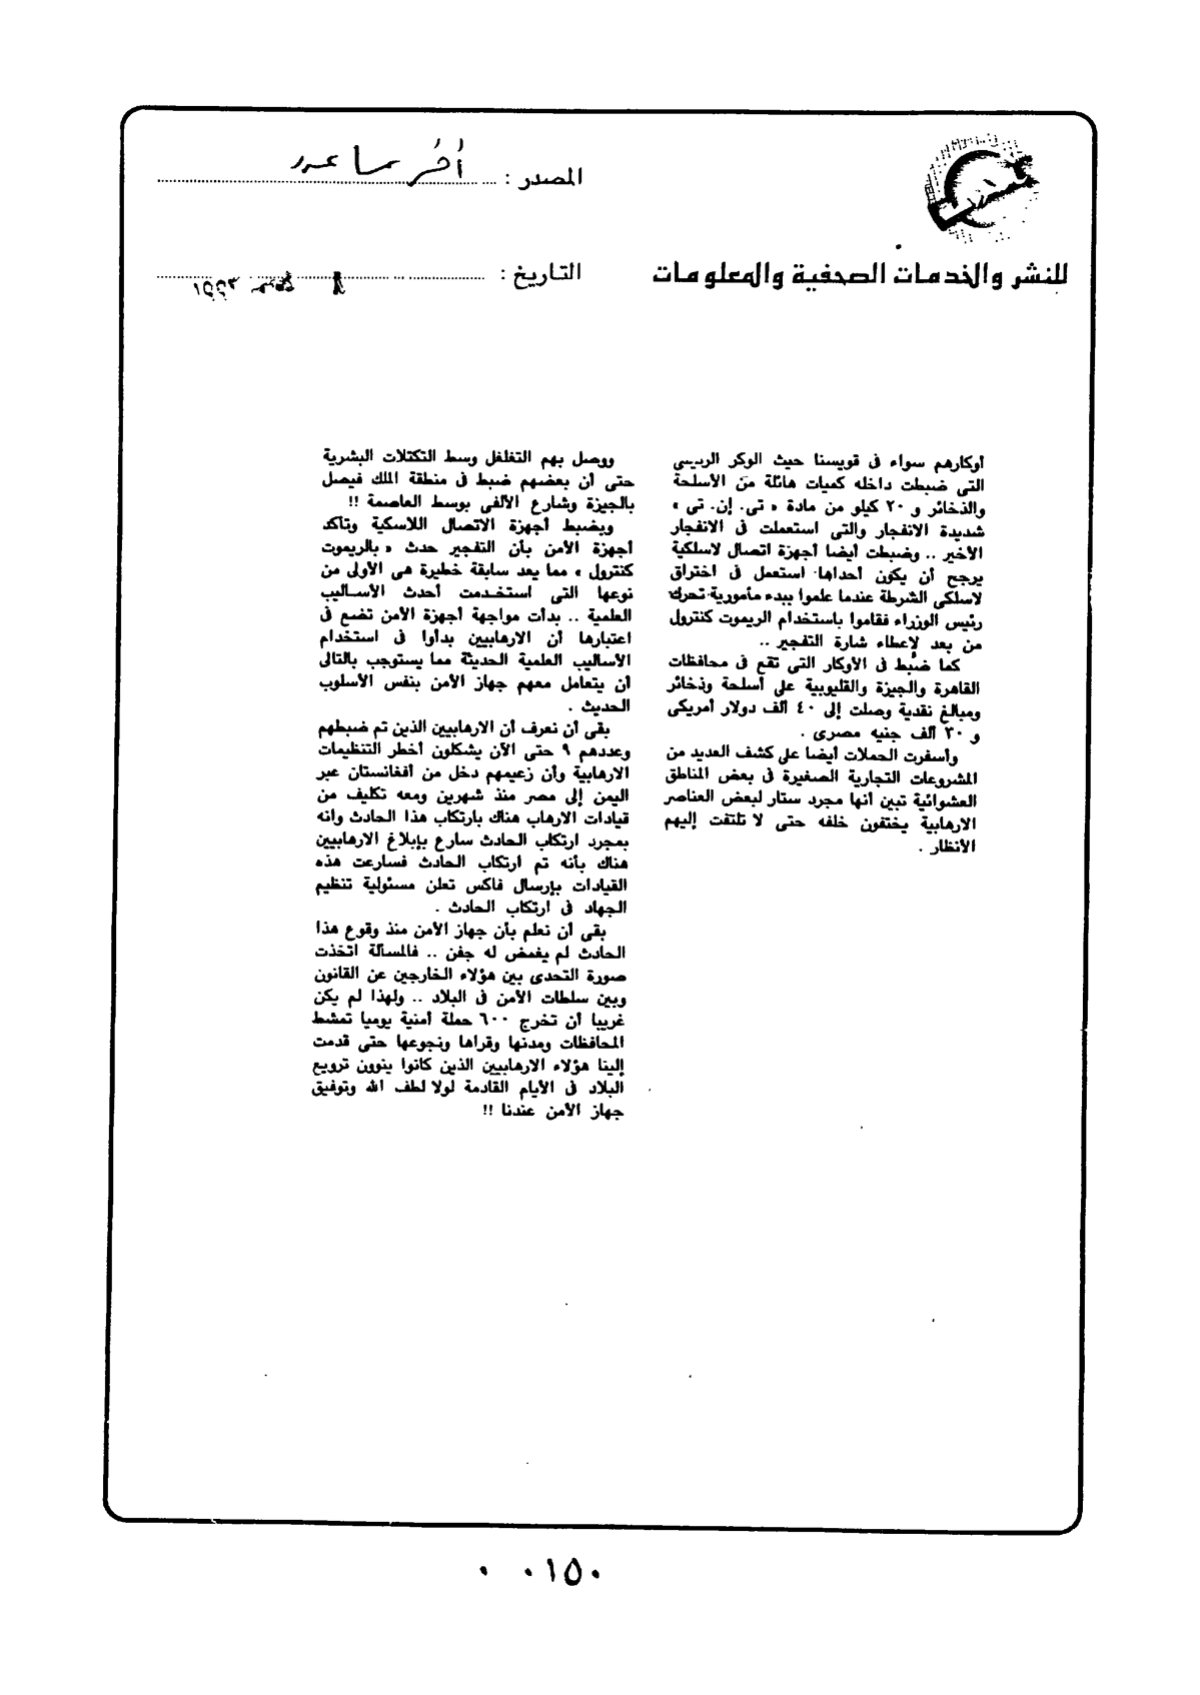 المصدر : أخر ساعة
للنشر والخدمات الصحفية والمعلومات
التاريخ :
أوكارهم سواء فى قويسنا حيث الوكر الرئيسى
التى ضبطت داخله كميات هائلة من الأسلحة
والذخائر و ٢٠ كيلو من مادة « تى. إن. تى »
شديدة الانفجار والتى استعملت فى الانفجار
الأخير .. وضبطت أيضا أجهزة اتصال لاسلكية
يرجح أن يكون أحداها استعمل فى اختراق
لاسلكى الشرطة عندما علموا ببدء مأمورية تحرك
رئيس الوزراء فقاموا باستخدام الريموت كنترول
من بعد لإعطاء شارة التفجير ..
كما ضبط فى الأوكار التى تقع فى محافظات
القاهرة والجيزة والقليوبية على أسلحة وذخائر
ومبالغ نقدية وصلت إلى ٤٠ ألف دولار أمريكى
و ٣٠ ألف جنيه مصرى .
وأسفرت الحملات أيضا على كشف العديد من
المشروعات التجارية الصغيرة فى بعض المناطق
العشوائية تبين أنها مجرد ستار لبعض العناصر
الارهابية يختفون خلفه حتى لا تلتفت إليهم
الأنظار .
ووصل بهم التغلغل وسط التكتلات البشرية
حتى أن بعضهم ضبط فى منطقة الملك فيصل
بالجيزة وشارع الألفى بوسط العاصمة !!
وبضبط أجهزة الاتصال اللاسكية وتأكد
أجهزة الأمن بأن التفجير حدث « بالريموت
كنترول » مما يعد سابقة خطيرة هى الأولى من
نوعها التى استخدمت أحدث الأساليب
العلمية .. بدأت مواجهة أجهزة الأمن تضع فى
اعتبارها أن الارهابيين بدأوا فى استخدام
الأساليب العلمية الحديثة مما يستوجب بالتالى
أن يتعامل معهم جهاز الأمن بنفس الأسلوب
الحديث .
بقى أن نعرف أن الارهابيين الذين تم ضبطهم
وعددهم ٩ حتى الآن يشكلون أخطر التنظيمات
الارهابية وأن زعيمهم دخل من أفغانستان عبر
اليمن إلى مصر منذ شهرين ومعه تكليف من
قيادات الارهاب هناك بارتكاب هذا الحادث وانه
بمجرد ارتكاب الحادث سارع بإبلاغ الارهابيين
هناك بأنه تم ارتكاب الحادث فسارعت هذه
القيادات بإرسال فاكس تعلن مسئولية تنظيم
الجهاد فى ارتكاب الحادث .
بقى أن نعلم بأن جهاز الأمن منذ وقوع هذا
الحادث لم يغمض له جفن .. فالمسألة اتخذت
صورة التحدى بين هؤلاء الخارجين عن القانون
وبين سلطات الأمن فى البلاد .. ولهذا لم يكن
غريبا أن تخرج ٦٠٠ حملة أمنية يوميا تمشط
المحافظات ومدنها وقراها ونجوعها حتى قدمت
إلينا هؤلاء الارهابيين الذين كانوا ينوون ترويع
البلاد فى الأيام القادمة لولا لطف الله وتوفيق
جهاز الأمن عندنا !!
٠ ٠١٥٠